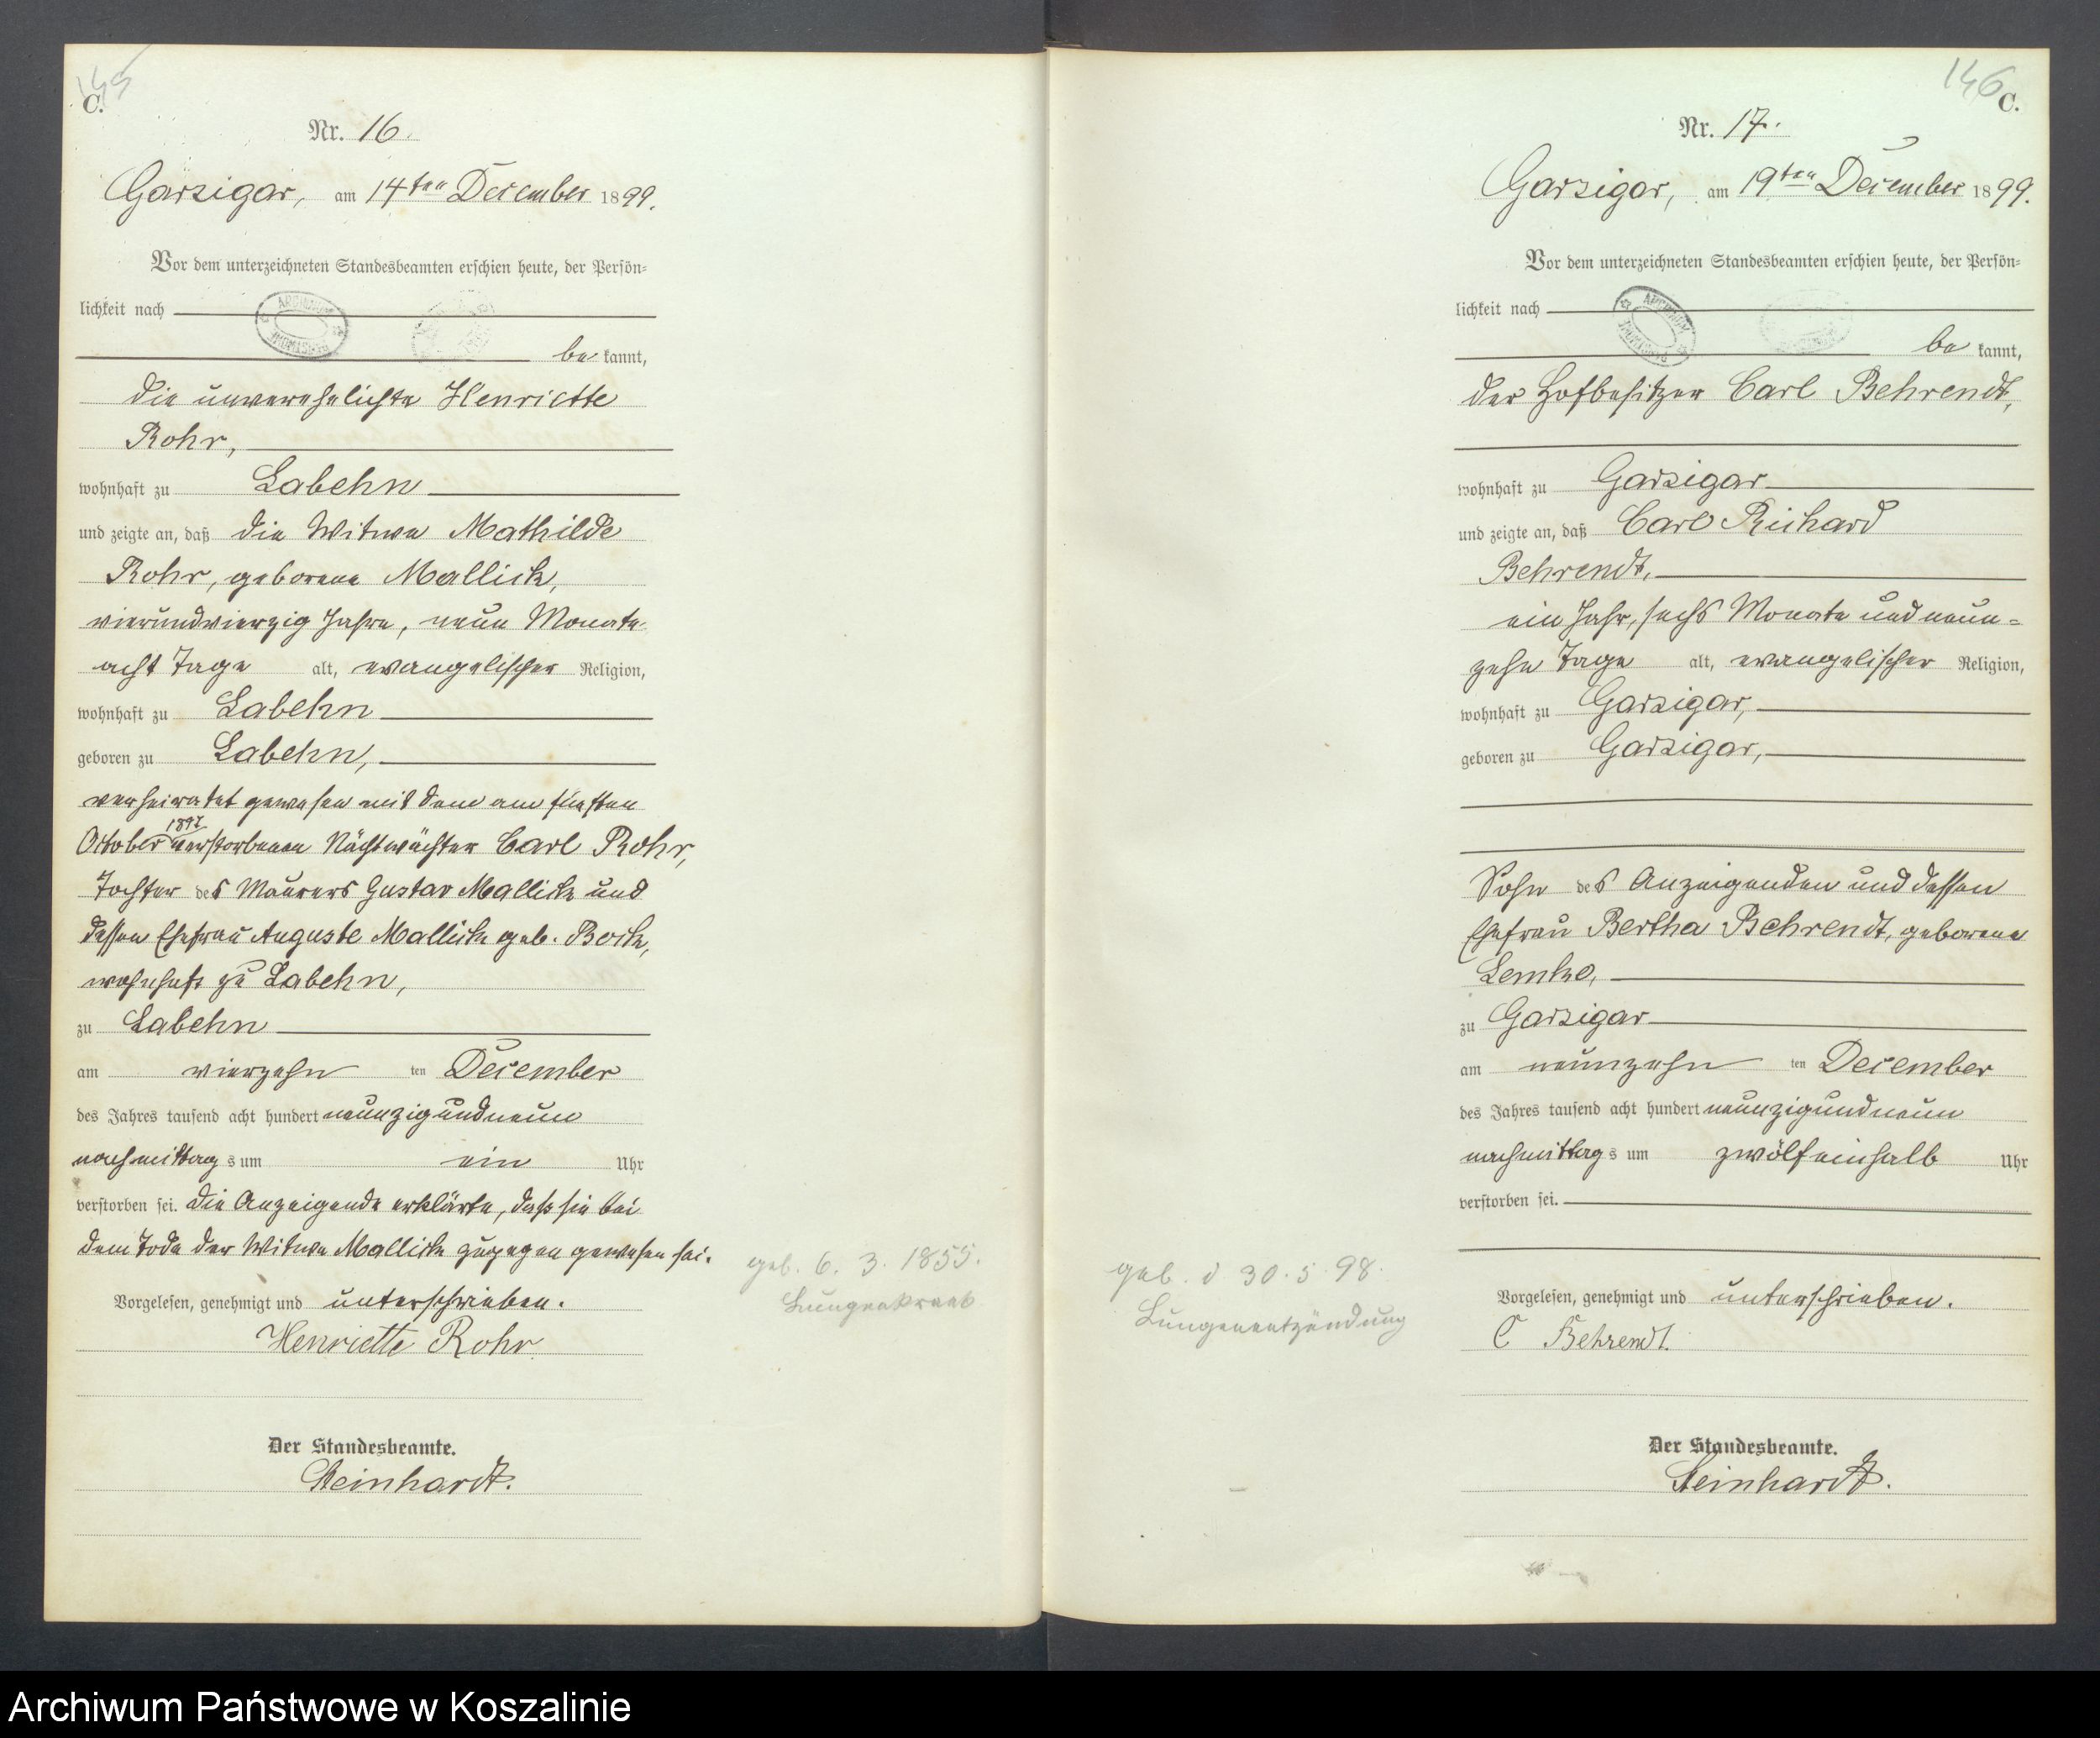 145
C.
Nr. 16.
Garzigar, am 14ten December 1899.
Vor dem unterzeichneten Standesbeamten erschien heute, der Persön-
lichkeit nach
be kannt,
die unverehelichte Henriette
Rohr,
wohnhaft zu Labehn
und zeigte an, daß die Witwe Mathilde
Rohr, geborene Mallick,
vierundvierzig Jahre, neun Monate
acht Tage alt, evangelischer Religion,
wohnhaft zu Labehn
geboren zu Labehn,
verheiratet gewesen mit dem am fünften
October 1897 verstorbenen Nachtwächter Carl Rohr,
Tochter des Maurers Gustav Mallick und
dessen Ehefrau Auguste Mallick geb. Bock,
wohnhaft zu Labehn,
zu Labehn
am vierzehn ten December
des Jahres tausend acht hundert neunzigundneun
nachmittag s um ein Uhr
verstorben sei. Die Anzeigende erklärte, daß sie bei
dem Tode der Witwe Mallick zugegen gewesen sei.
Vorgelesen, genehmigt und unterschrieben.
Henriette Rohr
Der Standesbeamte.
Steinhardt.
geb. 6. 3. 1855.
146
C.
Nr. 17.
Garzigar, am 19ten December 1899.
Vor dem unterzeichneten Standesbeamten erschien heute, der Persön-
lichkeit nach
be kannt,
der Hofbesitzer Carl Behrendt,
wohnhaft zu Garzigar
und zeigte an, daß Carl Richard
Behrendt,
ein Jahr, sechs Monate und neun-
zehn Tage alt, evangelischer Religion,
wohnhaft zu Garzigar,
geboren zu Garzigar,
Sohn des Anzeigenden und dessen
Ehefrau Bertha Behrendt, geborene
Lemke,
zu Garzigar
am neunzehn ten December
des Jahres tausend acht hundert neunzigundneun
nachmittag s um zwölfeinhalb Uhr
verstorben sei.
Vorgelesen, genehmigt und unterschrieben.
C Behrendt.
Der Standesbeamte.
Steinhardt.
geb. d 30. 5. 98.
Lungenentzündung
Archiwum Państwowe w Koszalinie